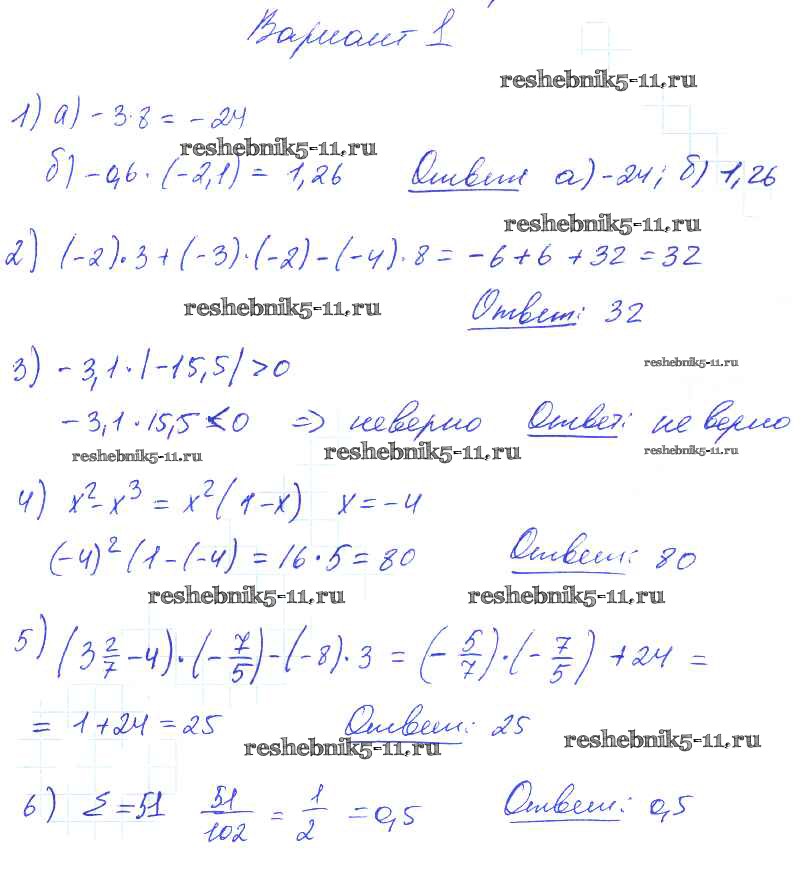 Вариант 1
reshebnik5-11.ru
1) а) -3·8 = -24
reshebnik5-11.ru
б) -0,6 · (-2,1) = 1,26 Ответ а) -24; б) 1,26
reshebnik5-11.ru
2) (-2)·3 + (-3)·(-2) - (-4)·8 = -6 + 6 + 32 = 32
reshebnik5-11.ru Ответ: 32
3) -3,1·|-15,5| > 0 reshebnik5-11.ru
-3,1·15,5 < 0 => неверно Ответ: не верно
reshebnik5-11.ru reshebnik5-11.ru reshebnik5-11.ru
4) x² - x³ = x²(1-x) x = -4
(-4)²(1-(-4) = 16·5 = 80 Ответ: 80
reshebnik5-11.ru reshebnik5-11.ru
5) (3 2/7 - 4)·(-7/5) - (-8)·3 = (-5/7)·(-7/5) + 24 =
= 1 + 24 = 25 Ответ: 25
reshebnik5-11.ru reshebnik5-11.ru
6) Σ = 51 51/102 = 1/2 = 0,5 Ответ: 0,5